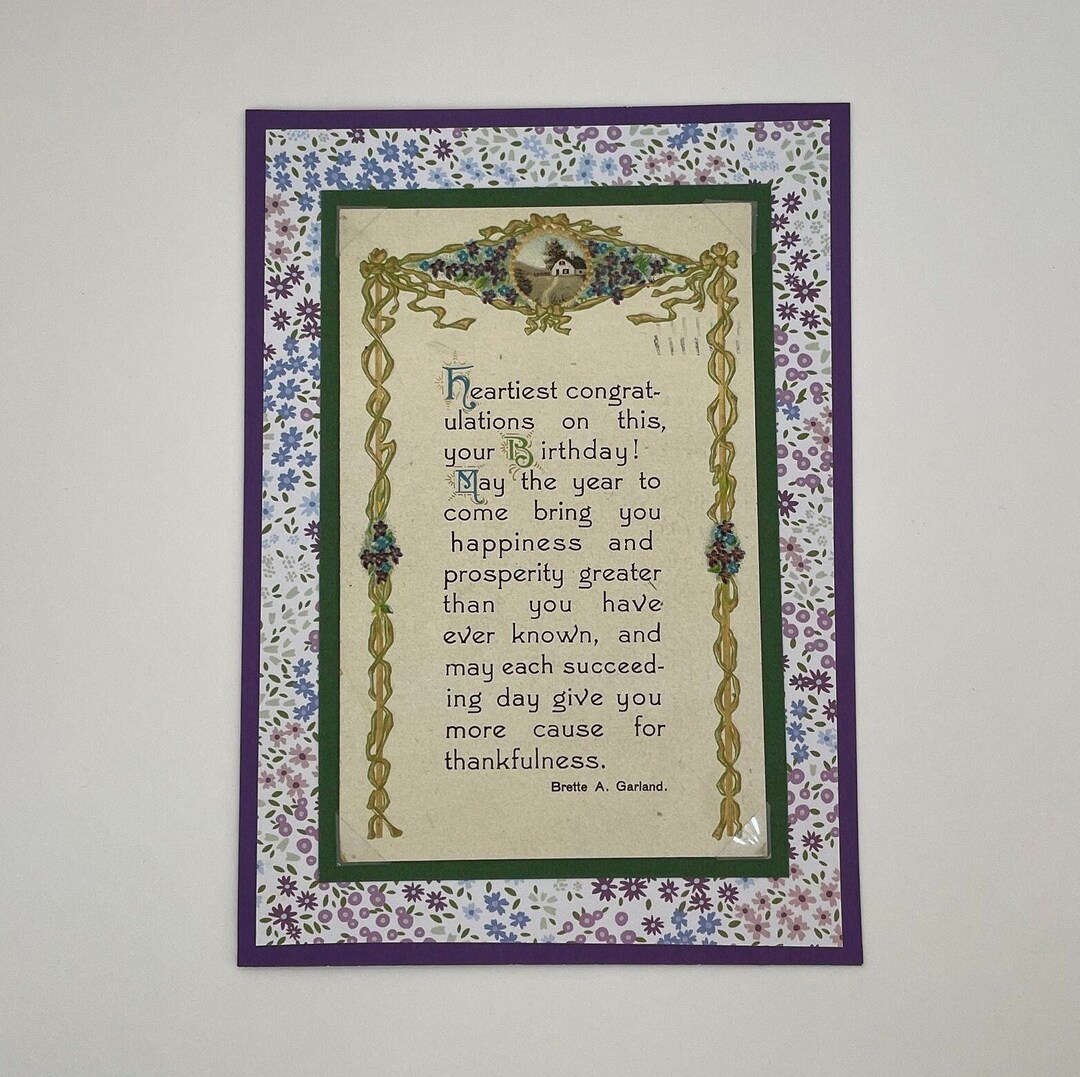 Heartiest congrat-
ulations on this,
your Birthday!
May the year to
come bring you
happiness and
prosperity greater
than you have
ever known, and
may each succeed-
ing day give you
more cause for
thankfulness.
Brette A. Garland.